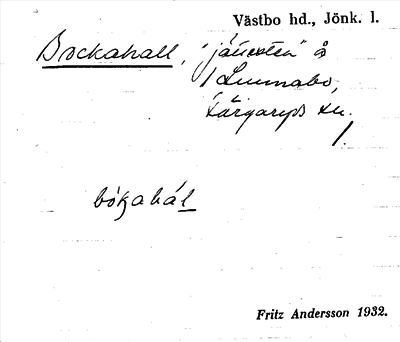 Västbo hd., Jönk. l.
Bockahall, "jättesten" å
Lunnabo,
Färgaryds sn.
bókahál
Fritz Andersson 1932.